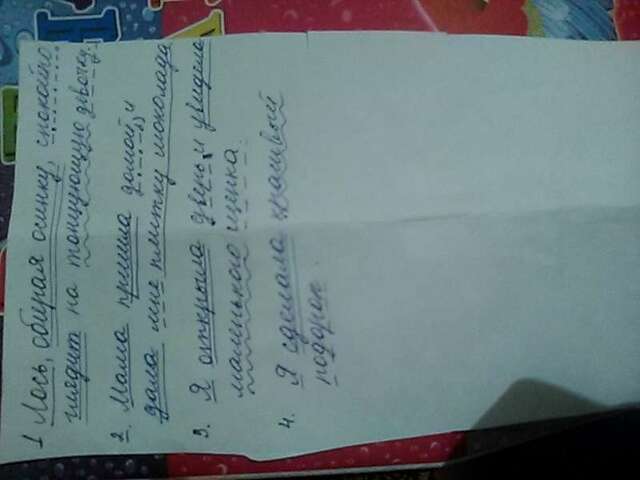 1 Лось, обирая осинку, спокойно
глядит на танцующую девочку.
2. Мама пришла домой и
дала мне плитку шоколада
3. Я открыла дверь, и увидела
маленького щенка.
4. Я сделала красивый
подарок.